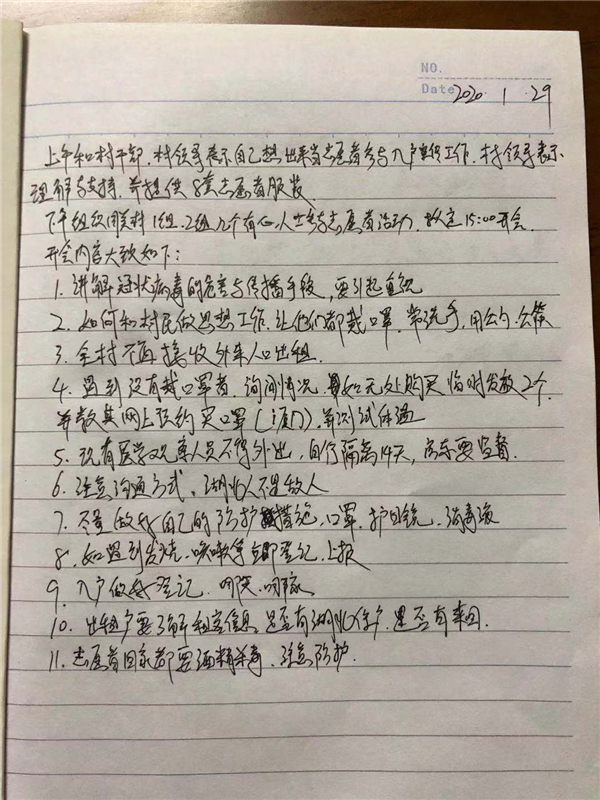 NO.
Date 2020 1 29
上午和村干部、村领导表示自己想出来当志愿者参与入户宣传工作、村领导表示
理解与支持、并提供8套志愿者服装
下午组织开关村1组、2组几个有心人士参与志愿者活动、拟定15:00开会
开会内容大致如下:
1. 讲解冠状病毒的危害与传播手段,要引起重视
2. 如何和村民做思想工作、让他们都戴口罩、常洗手,用公勺、公筷
3. 全村不再接收外来人口出租
4. 遇到没有戴口罩者、询问情况、如无处购买临时发放2个、
并教其网上预约买口罩(i厦门)、并测试体温
5. 现有医学观察人员不得外出,自行隔离14天,房东要监督.
6. 注意沟通方式、湖北人不是敌人
7. 尽量做好自己的防护措施、口罩、护目镜、消毒液
8. 如遇到发烧、咳嗽等立即登记、上报
9. 入户做好登记、明天、明确
10. 出租户要了解租客信息、是否有湖北住户、是否有来回.
11. 志愿者回家都要酒精杀毒、注意防护.